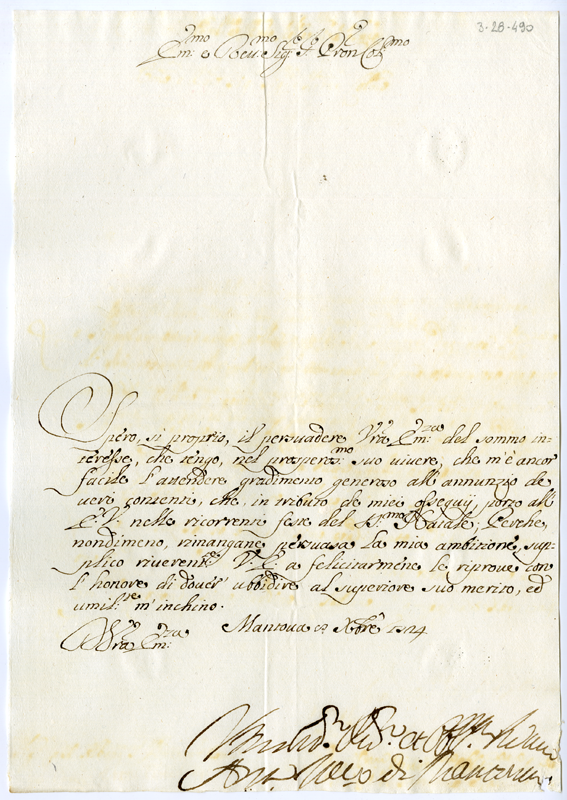 3-28-490
Em:mo e Reu:mo Sig:re Sig:re Pron Col:mo
Spero, si proprio, il persuadere Vrã Em:za del sommo in=
teresse, che tengo, nel prosperis:mo suo vivere, che m'è ancor
facile l'attendere gradimento generoso all'annunzio de
veri contenti, che, in tributo de miei ossequij, porto all'
E: V: nelle ricorrenti feste del S:mo Natale; Perche,
nondimeno, rimangane persuasa la mia ambizione, sup=
plico riverent:e V: E: a felicitarmene le riprove con
l'honore di dover' ubidire al superiore suo merito, ed
umil:te m'inchino.
Di Vrã Em:za Mantova Xbre 1714
Um:o di
Ant: di Mantova